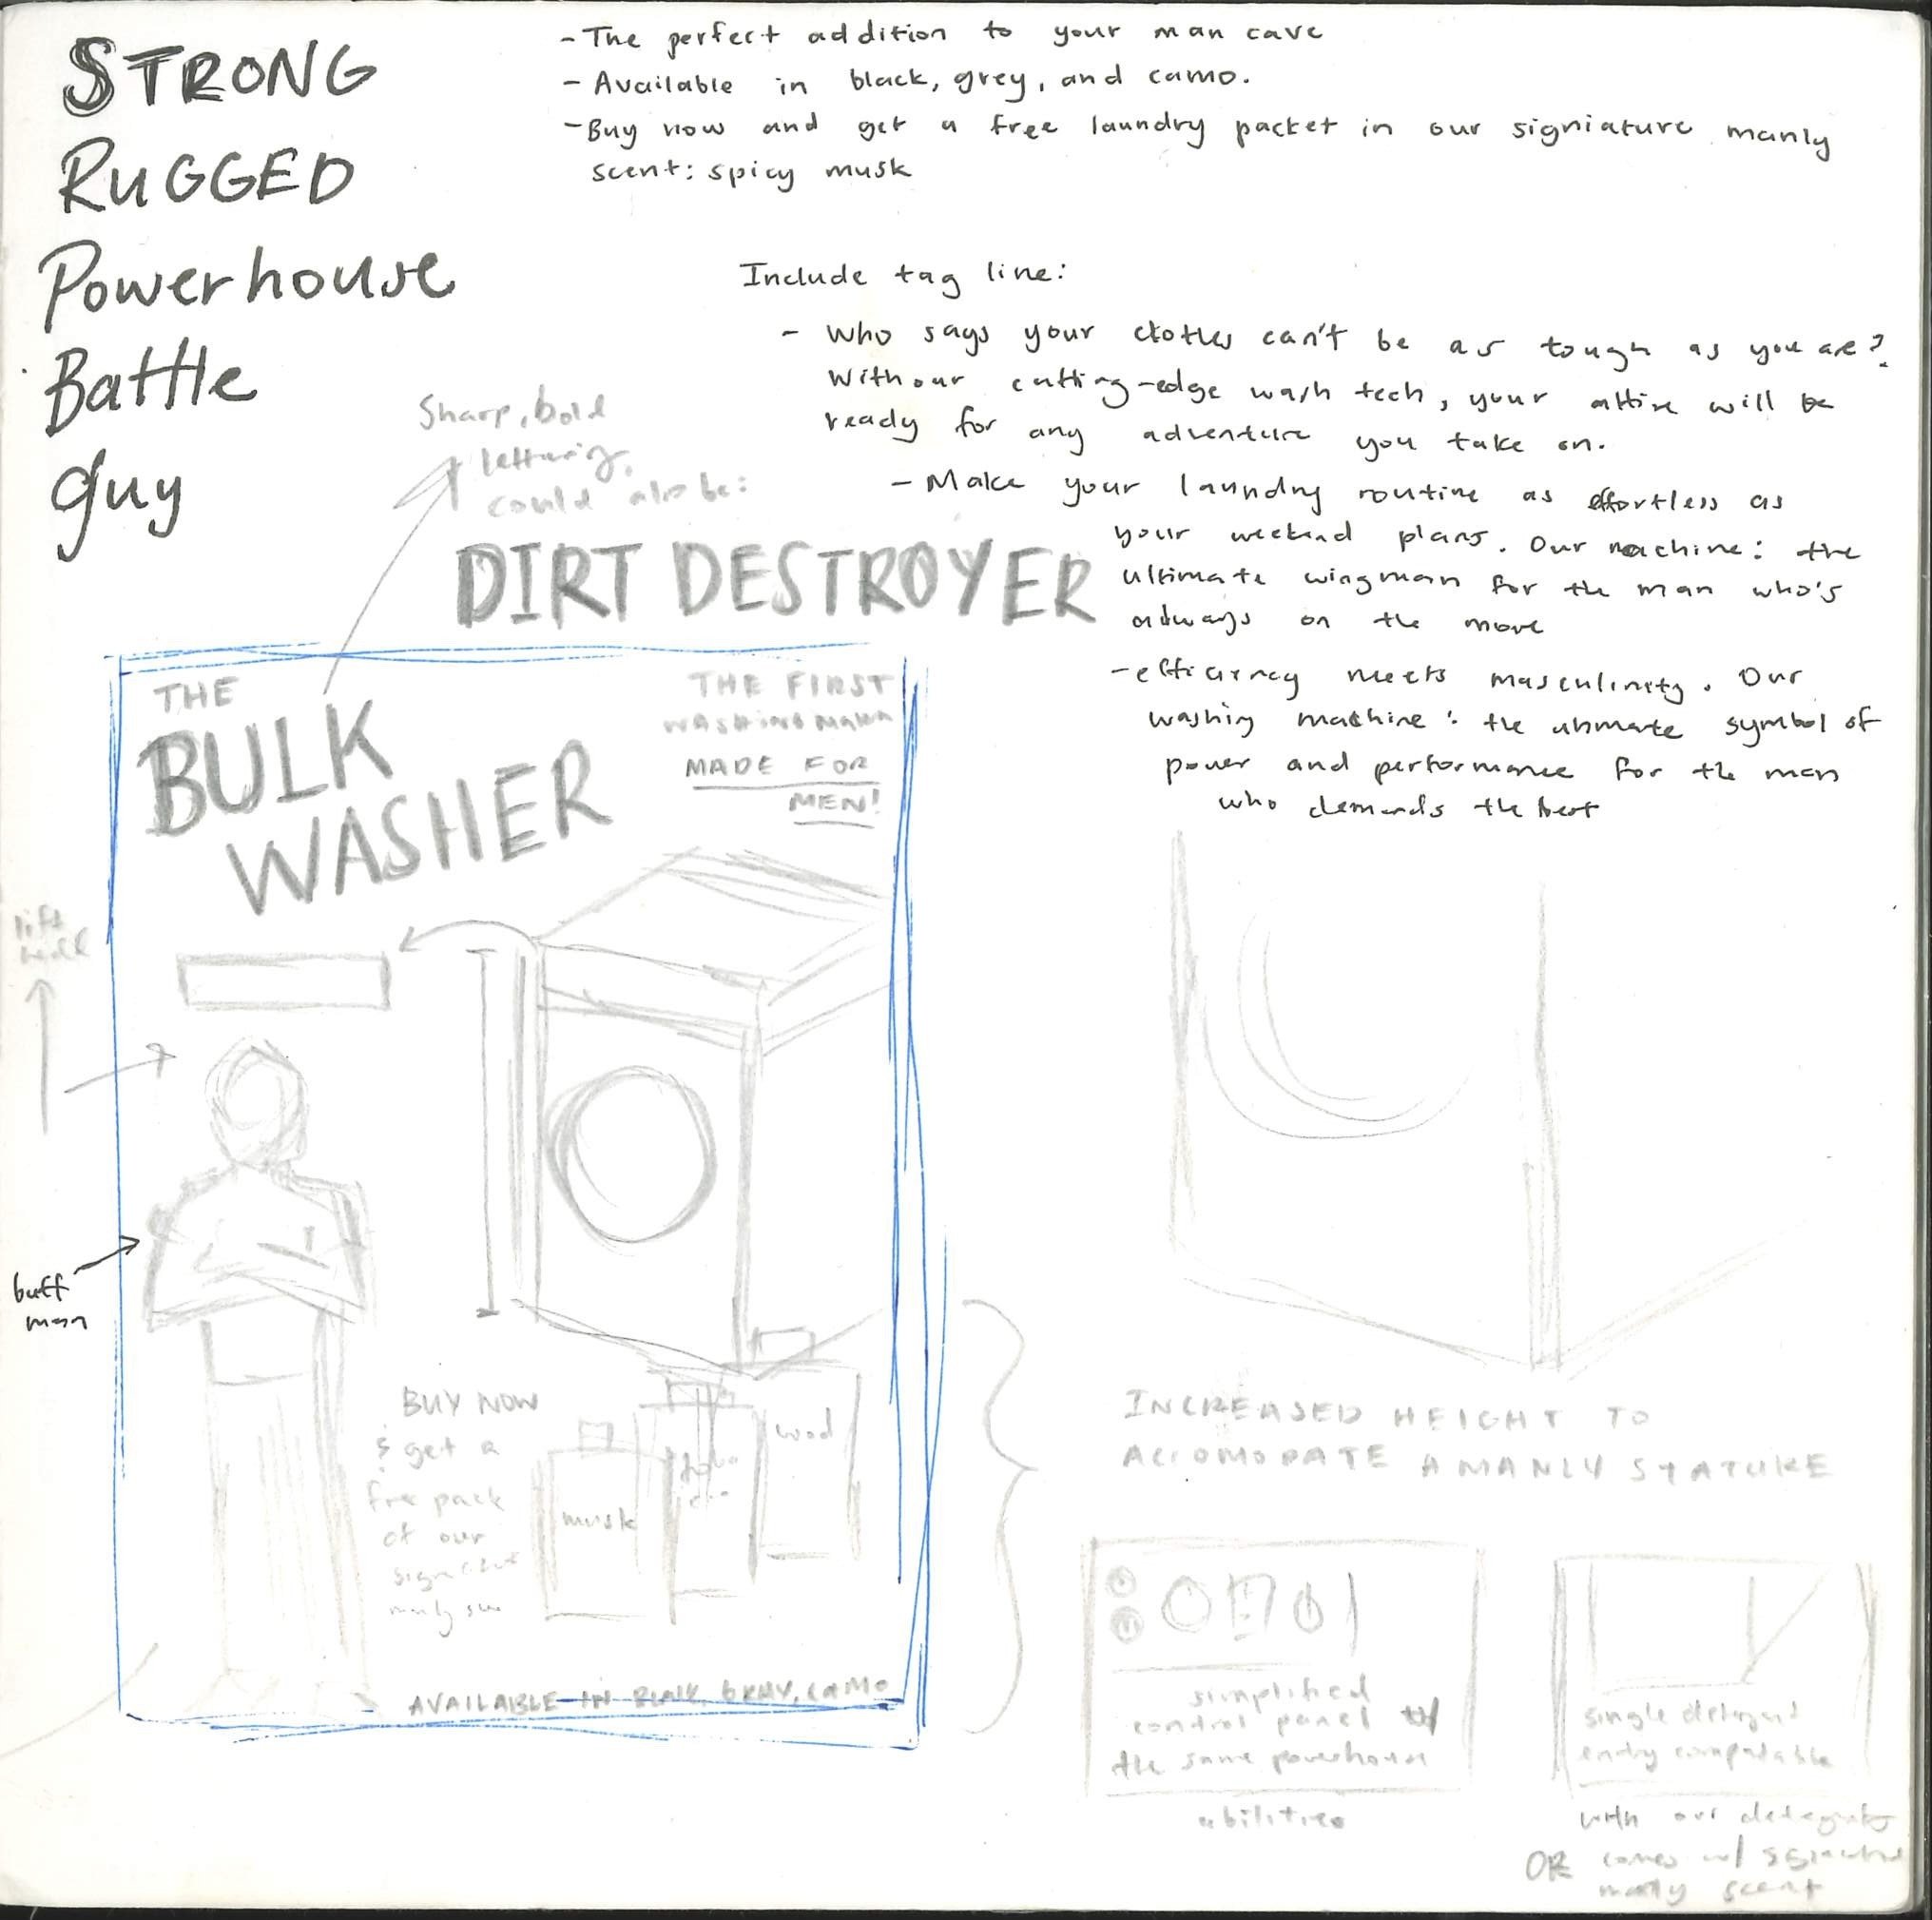 STRONG
RUGGED
Powerhouse
Battle
guy
- The perfect addition to your man cave
- Available in black, grey, and camo.
- Buy now and get a free laundry packet in our signiature manly
scent: spicy musk
Include tag line:
- Who says your clothes can't be as tough as you are?
With our cutting-edge wash tech, your attire will be
ready for any adventure you take on.
- Make your laundry routine as effortless as
your weekend plans. Our machine: the
ultimate wingman for the man who's
always on the move
- efficiency meets masculinity. Our
washing machine: the ultimate symbol of
power and performance for the man
who demands the best
Sharp, bold
lettering,
could also be:
DIRT DESTROYER
THE
BULK
WASHER
THE FIRST
WASHING
MADE FOR
MEN!
lift
buff
man
BUY NOW
& get a
free pack
of our
musk
wood
AVAILABLE IN BLACK, GRAY, CAMO
INCREASED HEIGHT TO
ACCOMODATE A MANLY STATURE
simplified
control panel w/
the same powerhouse
abilities
single detergent
entry compatable
with our detergents
OR comes w/
manly scent